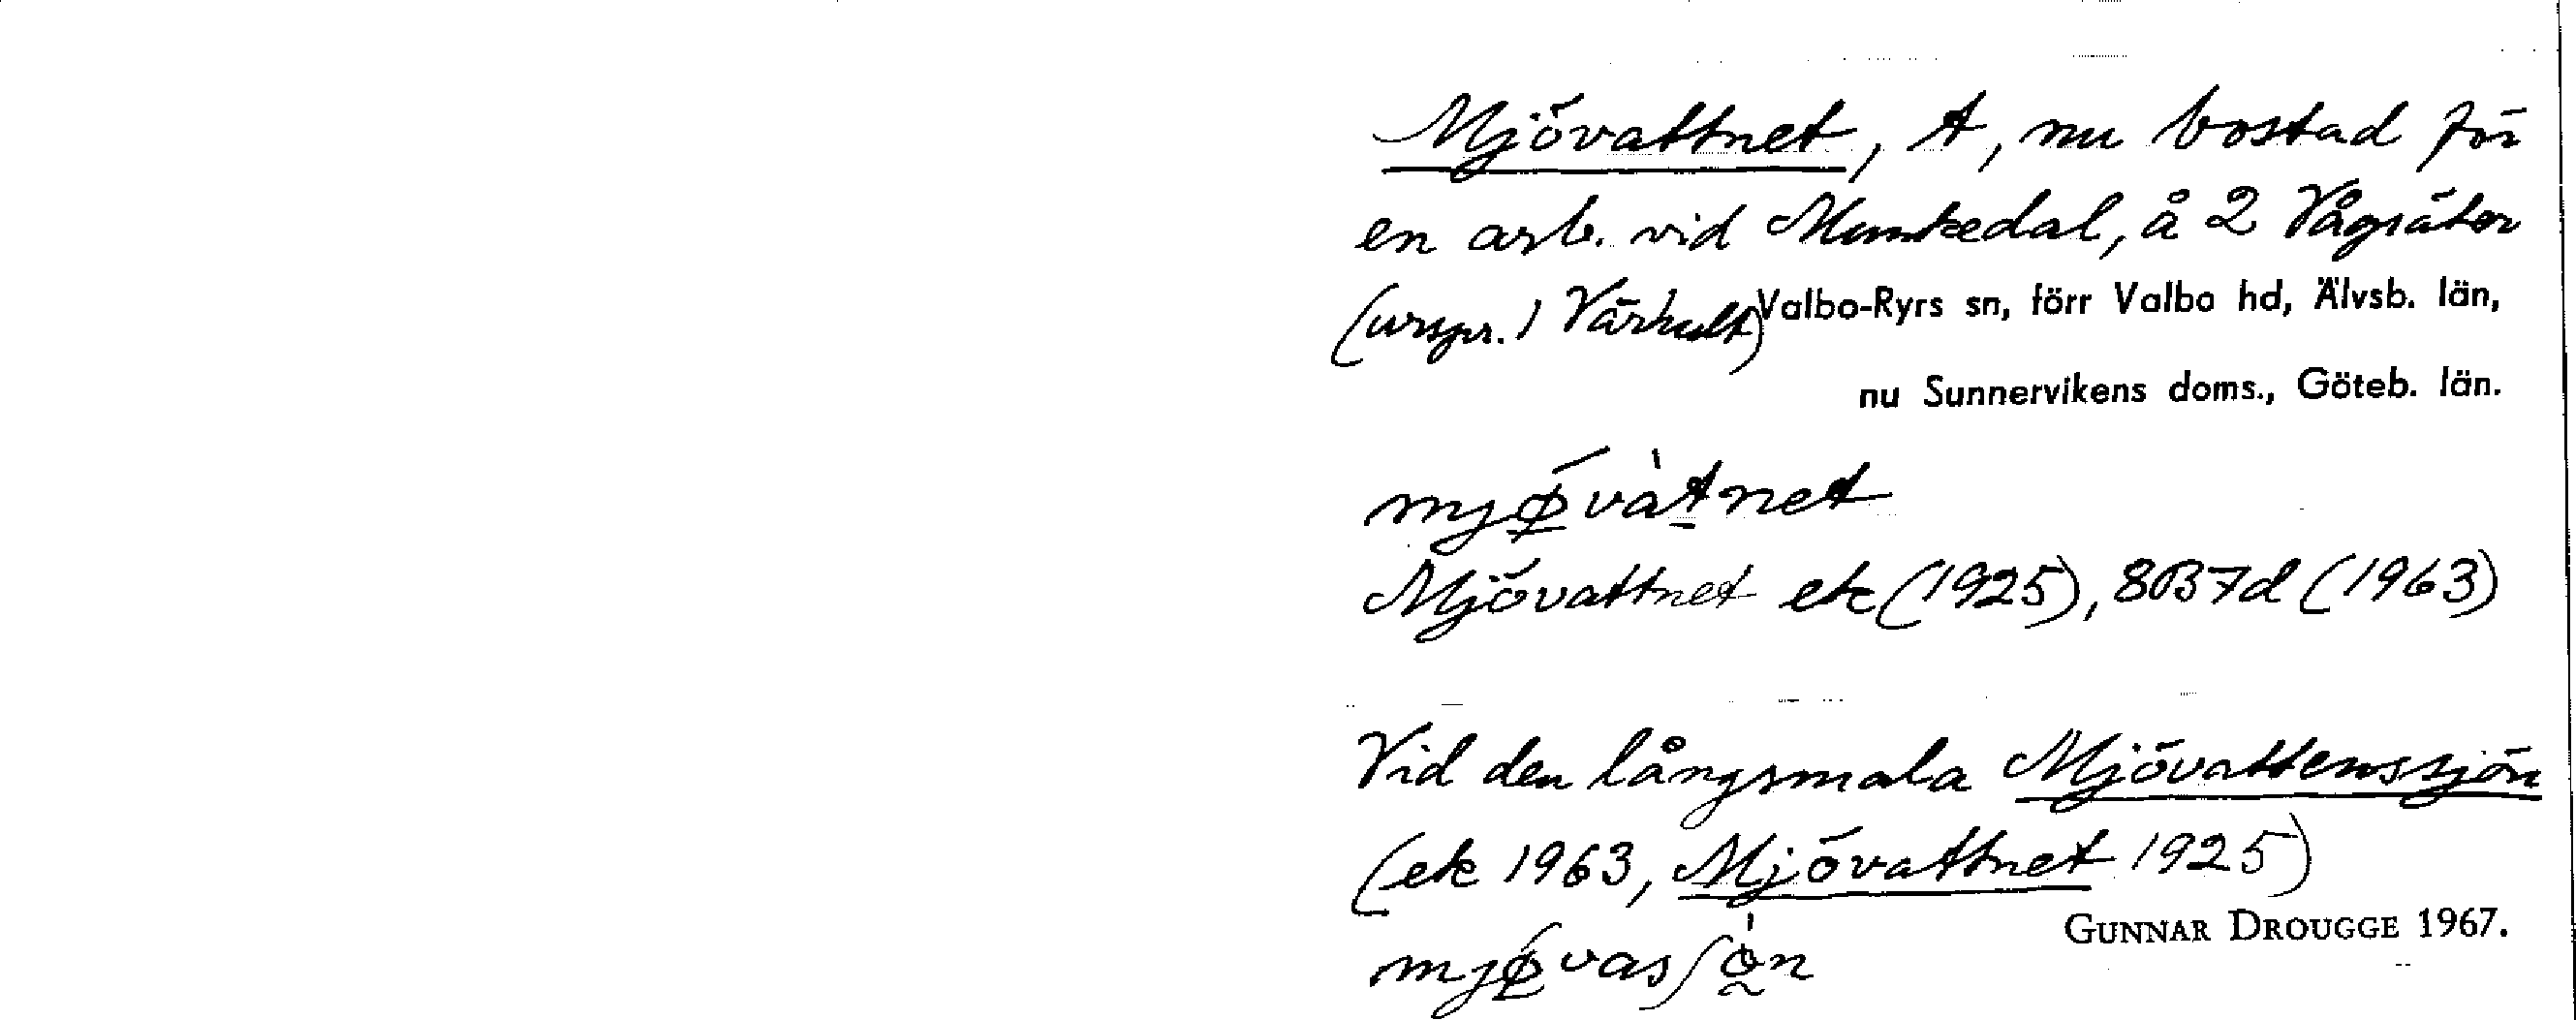 Mjövattnet, t, nu bostad för
en arb. vid Munkedal, å 2 Vågsäter
(urspr. 1 Vårhult) Valbo-Ryrs sn, förr Valbo hd, Älvsb. län,
nu Sunnervikens doms., Göteb. län.
Mjövattnet ek (1925), 8B7d (1963)
Vid den långsmala Mjövattenssjön
(ek 1963, Mjövattnet 1925)
GUNNAR DROUGGE 1967.